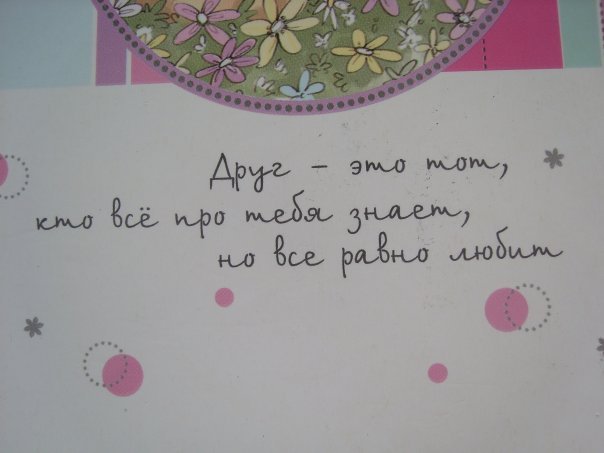 Друг - это тот,
кто всё про тебя знает,
но все равно любит